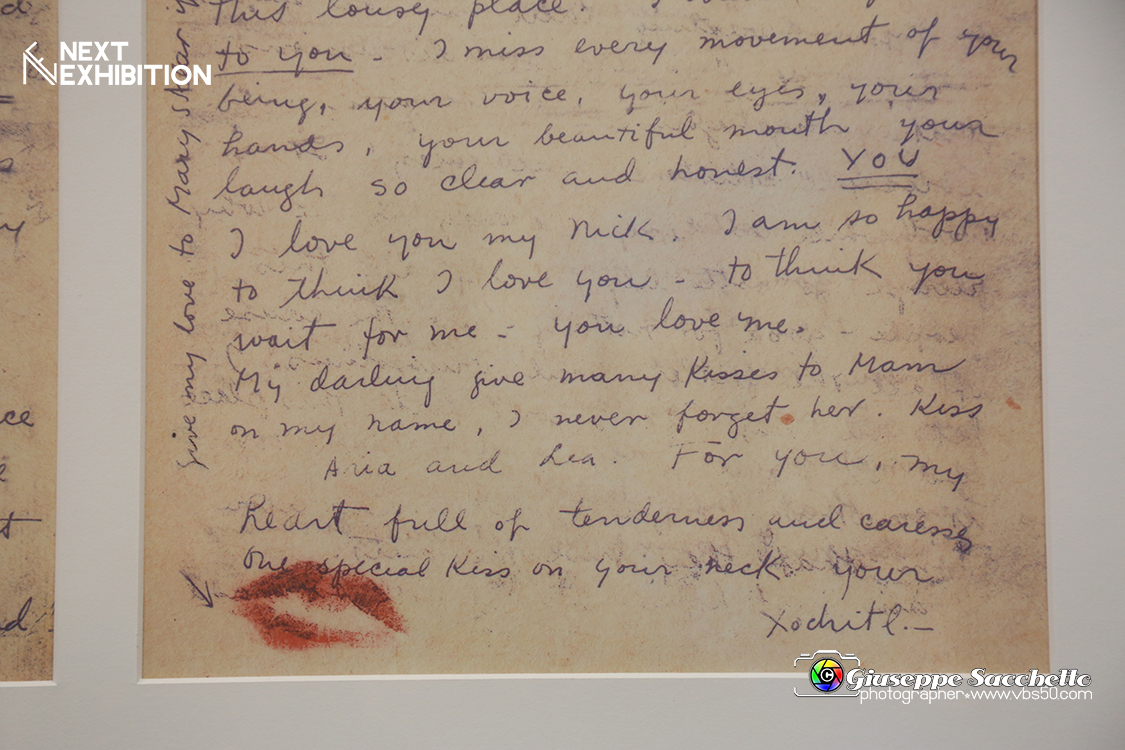 this lousy place.
to you - I miss every movement of your
being, your voice, your eyes, your
hands, your beautiful mouth your
laugh so clear and honest. YOU
I love you my Nick. I am so happy
to think I love you - to think you
wait for me - you love me.
My darling give many kisses to Mam
on my name, I never forget her. Kiss
Aria and Lea. For you, my
heart full of tenderness and caresses
One special kiss on your neck. your
Xochitl.-
give my love to Mary
NEXT
EXHIBITION
Giuseppe Sacchetto
photographer•www.vbs50.com